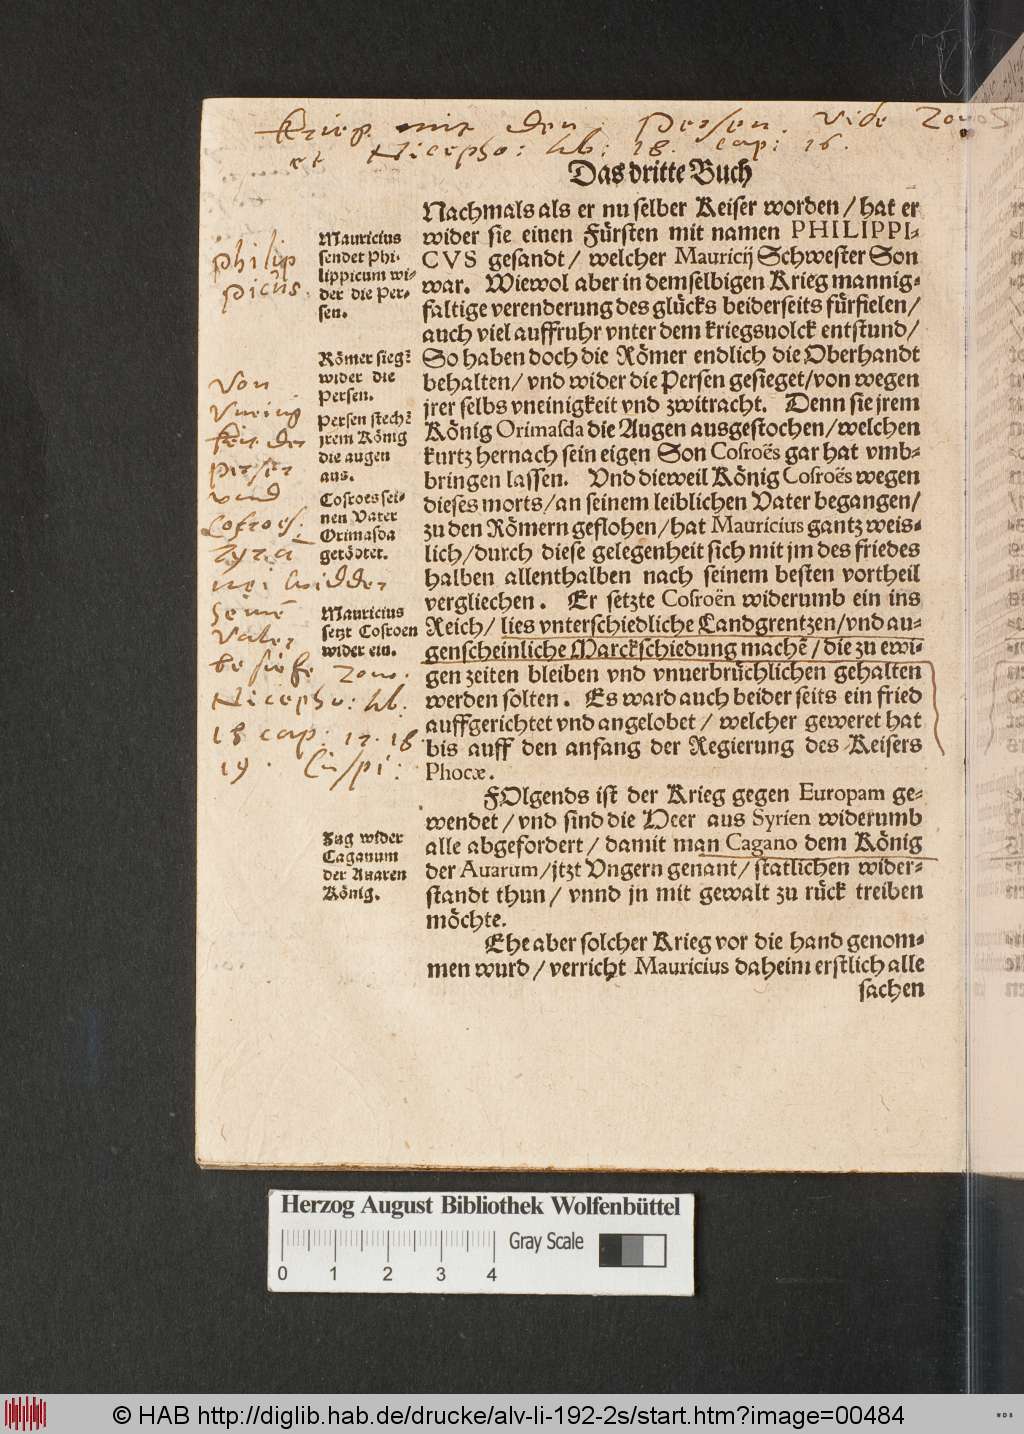 Krieg mit den Persen. vide Zonos
et Nicepho: lib: 18. cap: 16.
Das dritte Buch
Nachmals als er nu selber Keiser worden / hat er
wider sie einen Fürsten mit namen PHILIPPI-
CVS gesandt / welcher Mauricij Schwester Son
war. Wiewol aber in demselbigen Krieg mannig-
faltige verenderung des glücks beiderseits fürfielen /
auch viel auffruhr vnter dem kriegsuolck entstund /
So haben doch die Römer endlich die Oberhandt
behalten / vnd wider die Persen gesieget / von wegen
jrer selbs vneinigkeit vnd zwitracht. Denn sie jrem
König Orimasda die Augen ausgestochen / welchen
kurtz hernach sein eigen Son Cosroës gar hat vmb-
bringen lassen. Vnd dieweil König Cosroës wegen
dieses morts / an seinem leiblichen Vater begangen /
zu den Römern geflohen / hat Mauricius gantz weis-
lich / durch diese gelegenheit sich mit jm des friedes
halben allenthalben nach seinem besten vortheil
vergliechen. Er setzte Cosroën widerumb ein ins
Reich / lies vnterschiedliche Landgrentzen / vnd au-
genscheinliche Marckschiedung machē / die zu ewi-
gen zeiten bleiben vnd vnuerbrüchlichen gehalten
werden solten. Es ward auch beider seits ein fried
auffgerichtet vnd angelobet / welcher geweret hat
bis auff den anfang der Regierung des Keisers
Phocæ.
FOlgends ist der Krieg gegen Europam ge-
wendet / vnd sind die Heer aus Syrien widerumb
alle abgefordert / damit man Cagano dem König
der Auarum / jtzt Vngern genant / statlichen wider-
standt thun / vnnd jn mit gewalt zu rück treiben
möchte.
Ehe aber solcher Krieg vor die hand genom-
men wurd / verricht Mauricius daheim erstlich alle
sachen
Mauricius
sendet Phi-
lippicum wi-
der die Per-
sen.
Römer siegē
wider die
Persen.
Persen stechē
jrem König
die augen
aus.
Cosroes sei-
nen Vater
Orimasda
getödtet.
Mauricius
setzt Cosroen
wider ein.
Zug wider
Caganum
der Auaren
König.
philip
picus.
Von
Vneinig
keit der
perser
vnd
Cosroes.
Tyra
nei widder
seinē
Vater
besiehe Zono.
Nicepho: lib.
18 cap: 17. 18
19. Cuspi:
Herzog August Bibliothek Wolfenbüttel
Gray Scale
0 1 2 3 4
© HAB http://diglib.hab.de/drucke/alv-li-192-2s/start.htm?image=00484